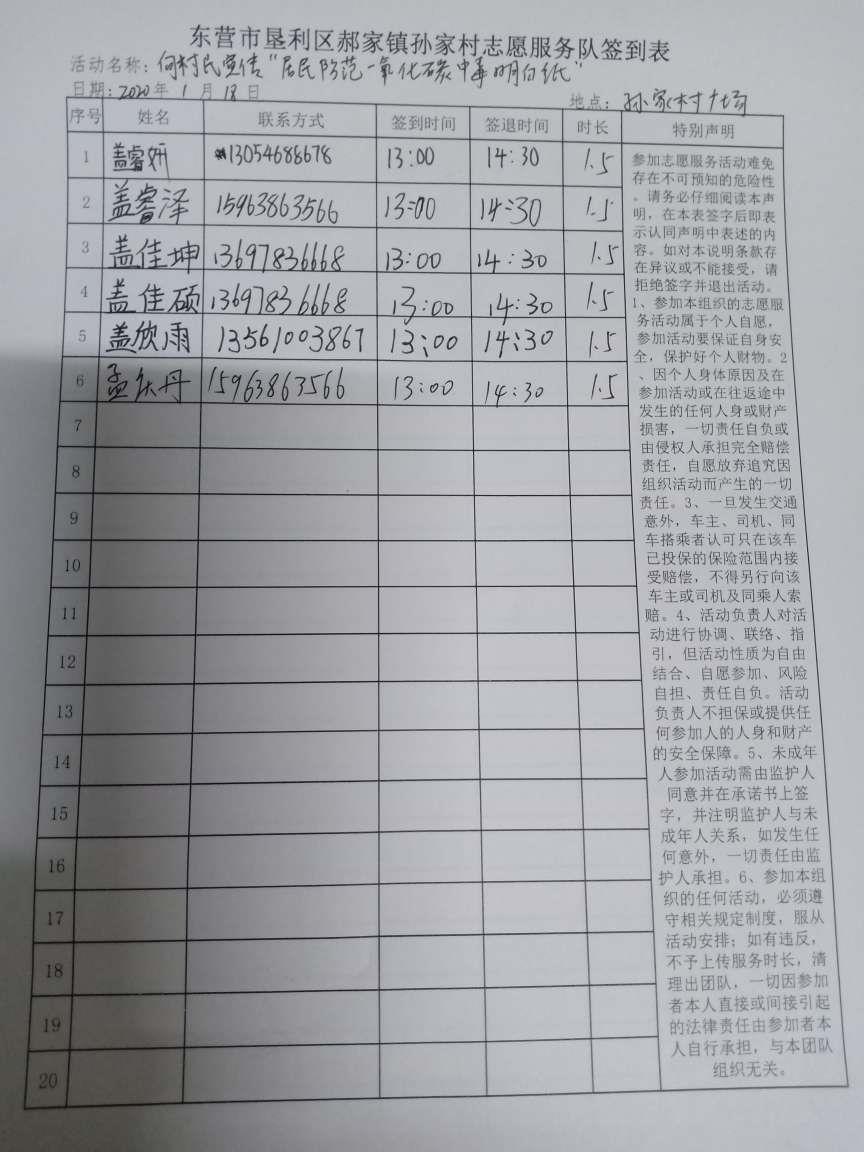 东营市垦利区郝家镇孙家村志愿服务队签到表
活动名称：向村民宣传“居民防范一氧化碳中毒明白纸”
日期：2020年 1月 18日
地点：孙家村广场
序号 姓名 联系方式 签到时间 签退时间 时长 特别声明
1 盖睿妍 13054688678 13:00 14:30 1.5
2 盖睿泽 15963863566 13:00 14:30 1.5
3 盖佳坤 13697836668 13:00 14:30 1.5
4 盖佳硕 13697836668 13:00 14:30 1.5
5 盖欣雨 13561003867 13:00 14:30 1.5
6 孟庆丹 15963863566 13:00 14:30 1.5
7
8
9
10
11
12
13
14
15
16
17
18
19
20
参加志愿服务活动难免
存在不可预知的危险性
。请务必仔细阅读本声
明，在本表签字后即表
示认同声明中表述的内
容。如对本说明条款存
在异议或不能接受，请
拒绝签字并退出活动。
1、参加本组织的志愿服
务活动属于个人自愿，
参加活动要保证自身安
全，保护好个人财物。2
、因个人身体原因及在
参加活动或在往返途中
发生的任何人身或财产
损害，一切责任自负或
由侵权人承担完全赔偿
责任，自愿放弃追究因
组织活动而产生的一切
责任。3、一旦发生交通
意外，车主、司机、同
车搭乘者认可只在该车
已投保的保险范围内接
受赔偿，不得另行向该
车主或司机及同乘人索
赔。4、活动负责人对活
动进行协调、联络、指
引，但活动性质为自由
结合、自愿参加、风险
自担、责任自负。活动
负责人不担保或提供任
何参加人的人身和财产
的安全保障。5、未成年
人参加活动需由监护人
同意并在承诺书上签
字，并注明监护人与未
成年人关系，如发生任
何意外，一切责任由监
护人承担。6、参加本组
织的任何活动，必须遵
守相关规定制度，服从
活动安排；如有违反，
不予上传服务时长，清
理出团队，一切因参加
者本人直接或间接引起
的法律责任由参加者本
人自行承担，与本团队
组织无关。